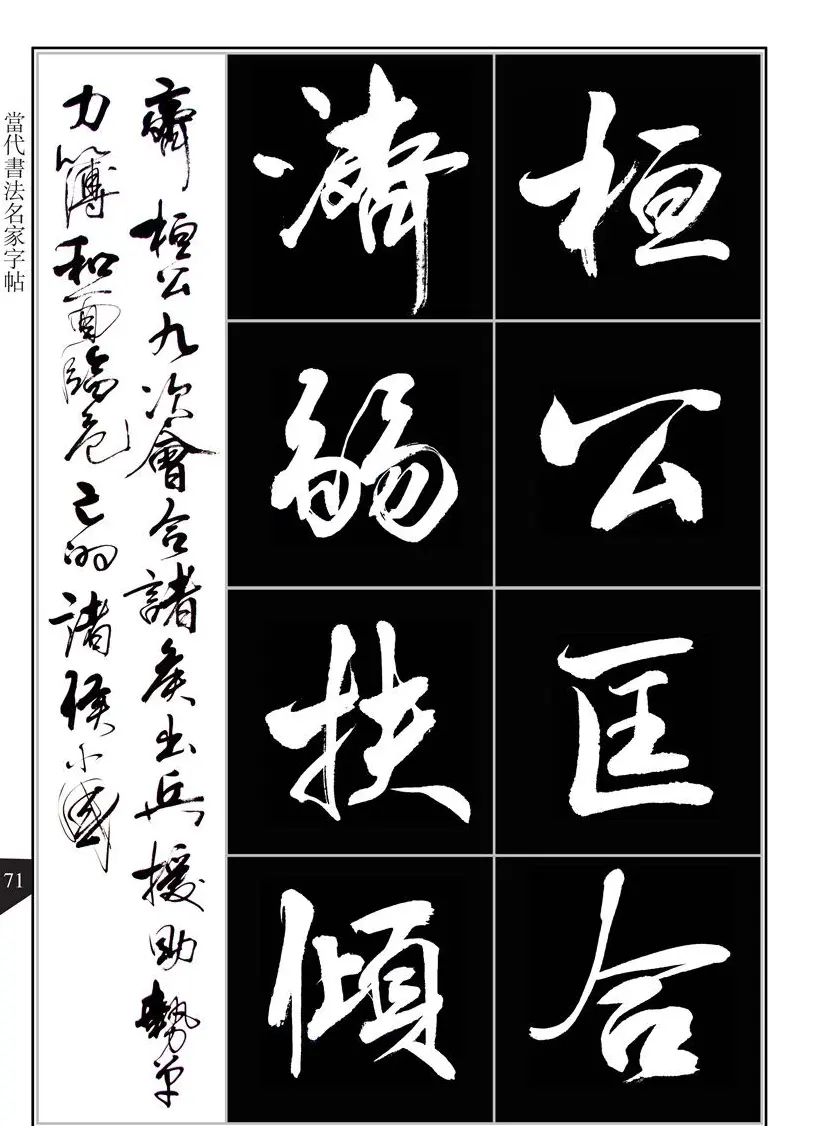 桓公匡合
濟弱扶傾
齊桓公九次會合諸侯出兵援助勢單
力簿和面臨危亡的諸侯小國
當代書法名家字帖
71